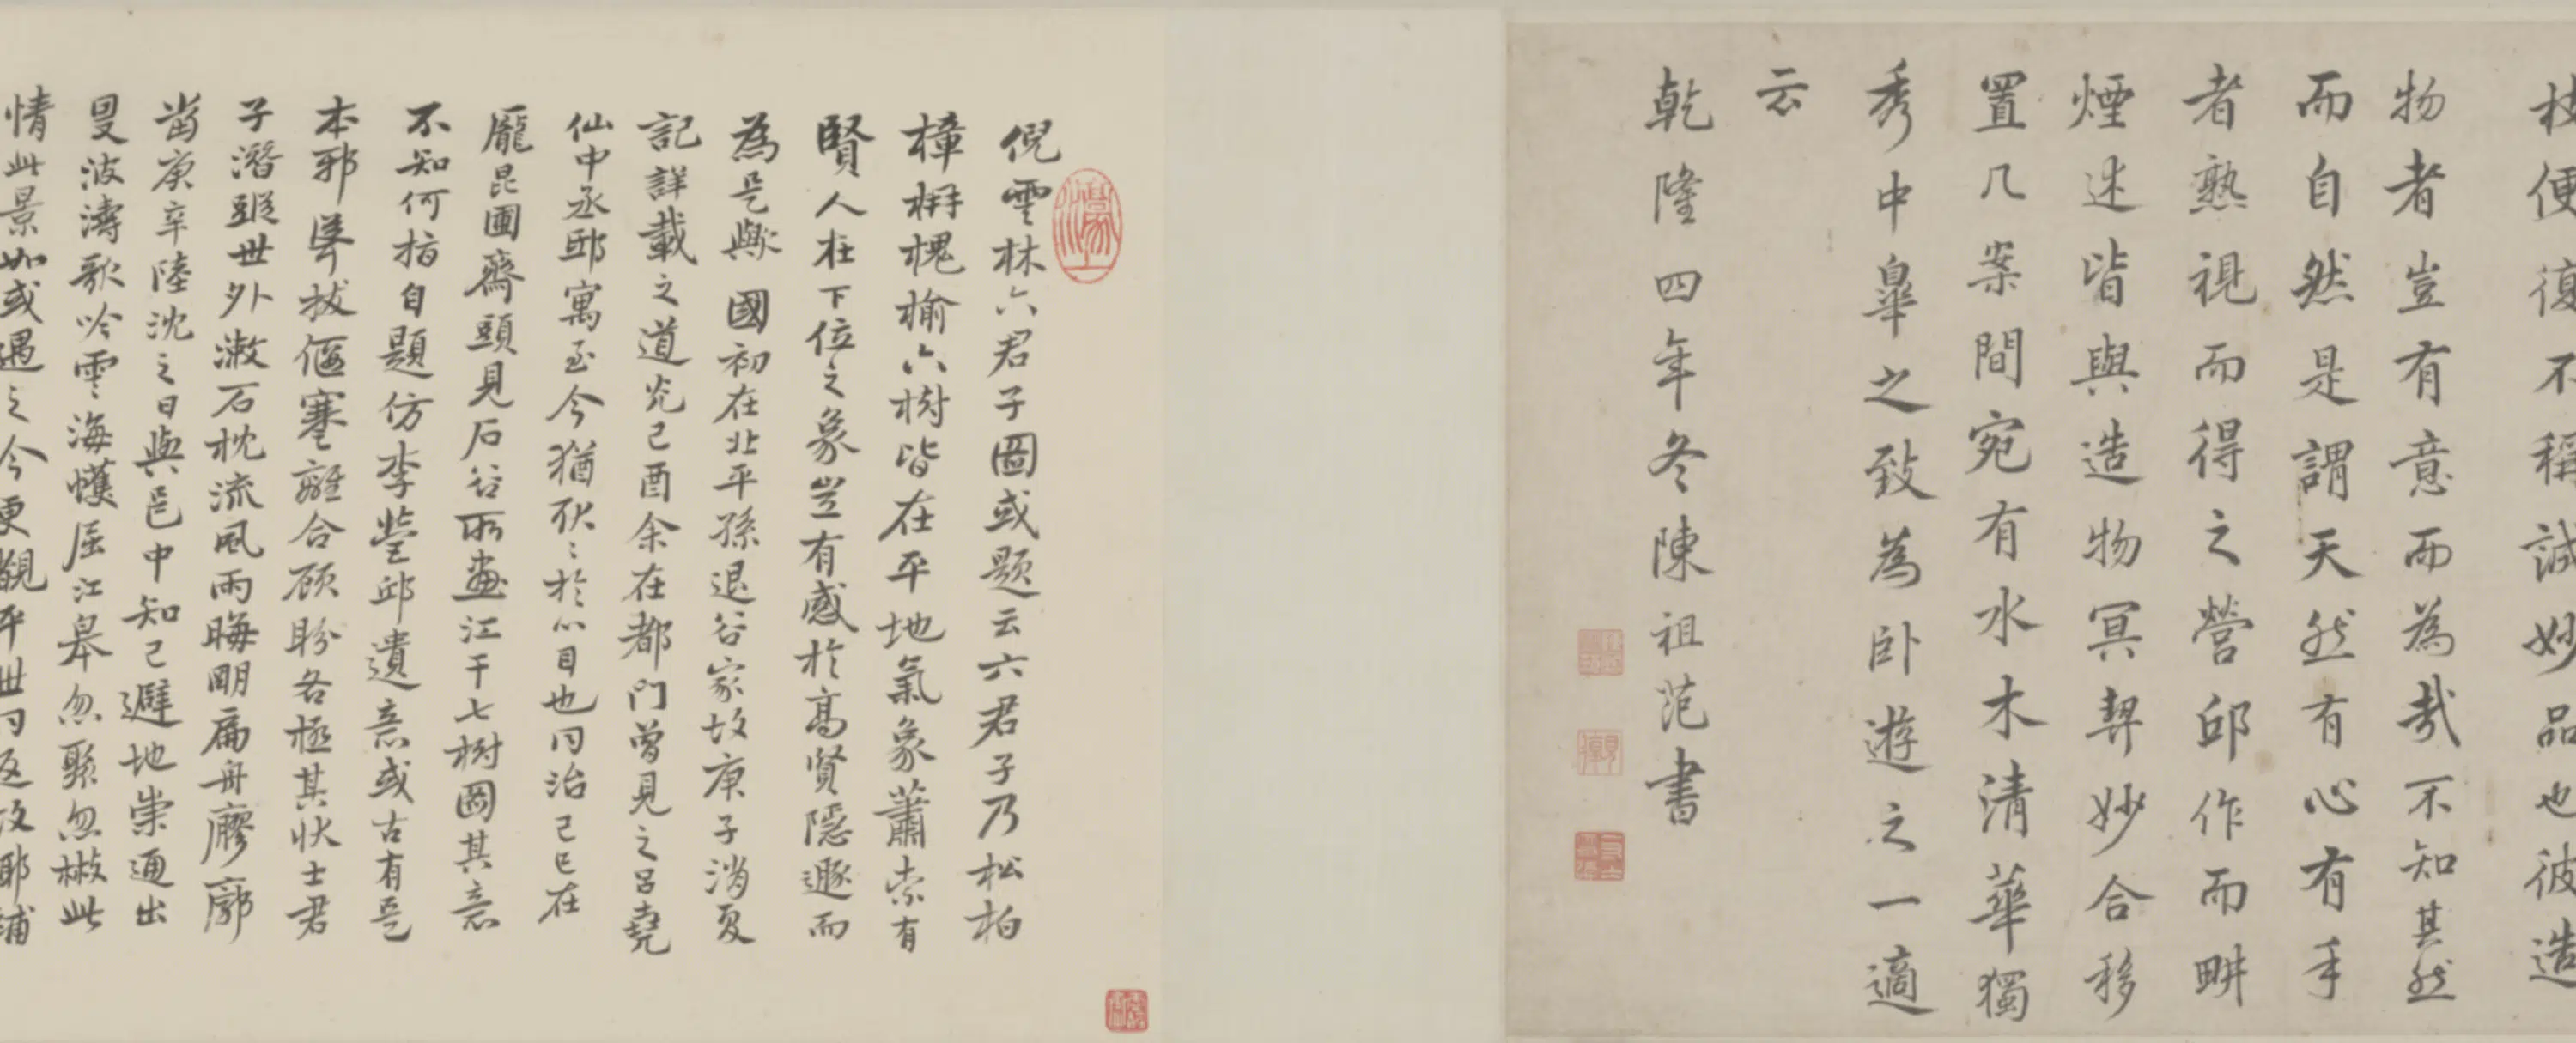 枝便復不稱誠妙品也彼造
物者豈有意而為哉不知其然
而自然是謂天然有心有手
者熟視而得之營邱作而畊
煙迷皆與造物冥契妙合移
置几案間宛有水木清華獨
秀中皐之致為卧遊之一適
云
乾隆四年冬陳祖范書
倪雲林六君子圖或题云六君子乃松柏
樟枏槐榆六樹皆在平地氣象蕭索有
賢人在下位之象豈有感於高賢隱遯而
為是歟國初在北平孫退谷家故庚子消夏
記詳載之道光己酉余在都門曾見之呂堯
仙中丞邸寓至今猶耿〻於心目也同治己巳在
龐昆圃齋頭見石谷所畫江干七樹圖其意
不知何指自題仿李營邱遺意或古有是
本邪峯拔偃蹇離合顾盼各極其狀士君
子潛蹤世外潄石枕流風雨晦明扁舟廖廓
當庚辛陸沈之日與邑中知己避地崇通出
叟波濤歌吟雲海幞屈江皋忽聚忽散此
情此景如或遇之今更觀平世同返故耶